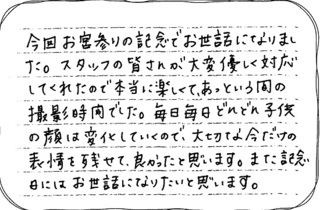 今回お宮参りの記念でお世話になりまし
た。スタッフの皆さんが大変優しく対応
してくれたので本当に楽しくて、あっという間の
撮影時間でした。毎日毎日どんどん子供
の顔は変化していくので、大切な今だけの
表情を残せて、良かったと思います。また記念
日にはお世話になりたいと思います。